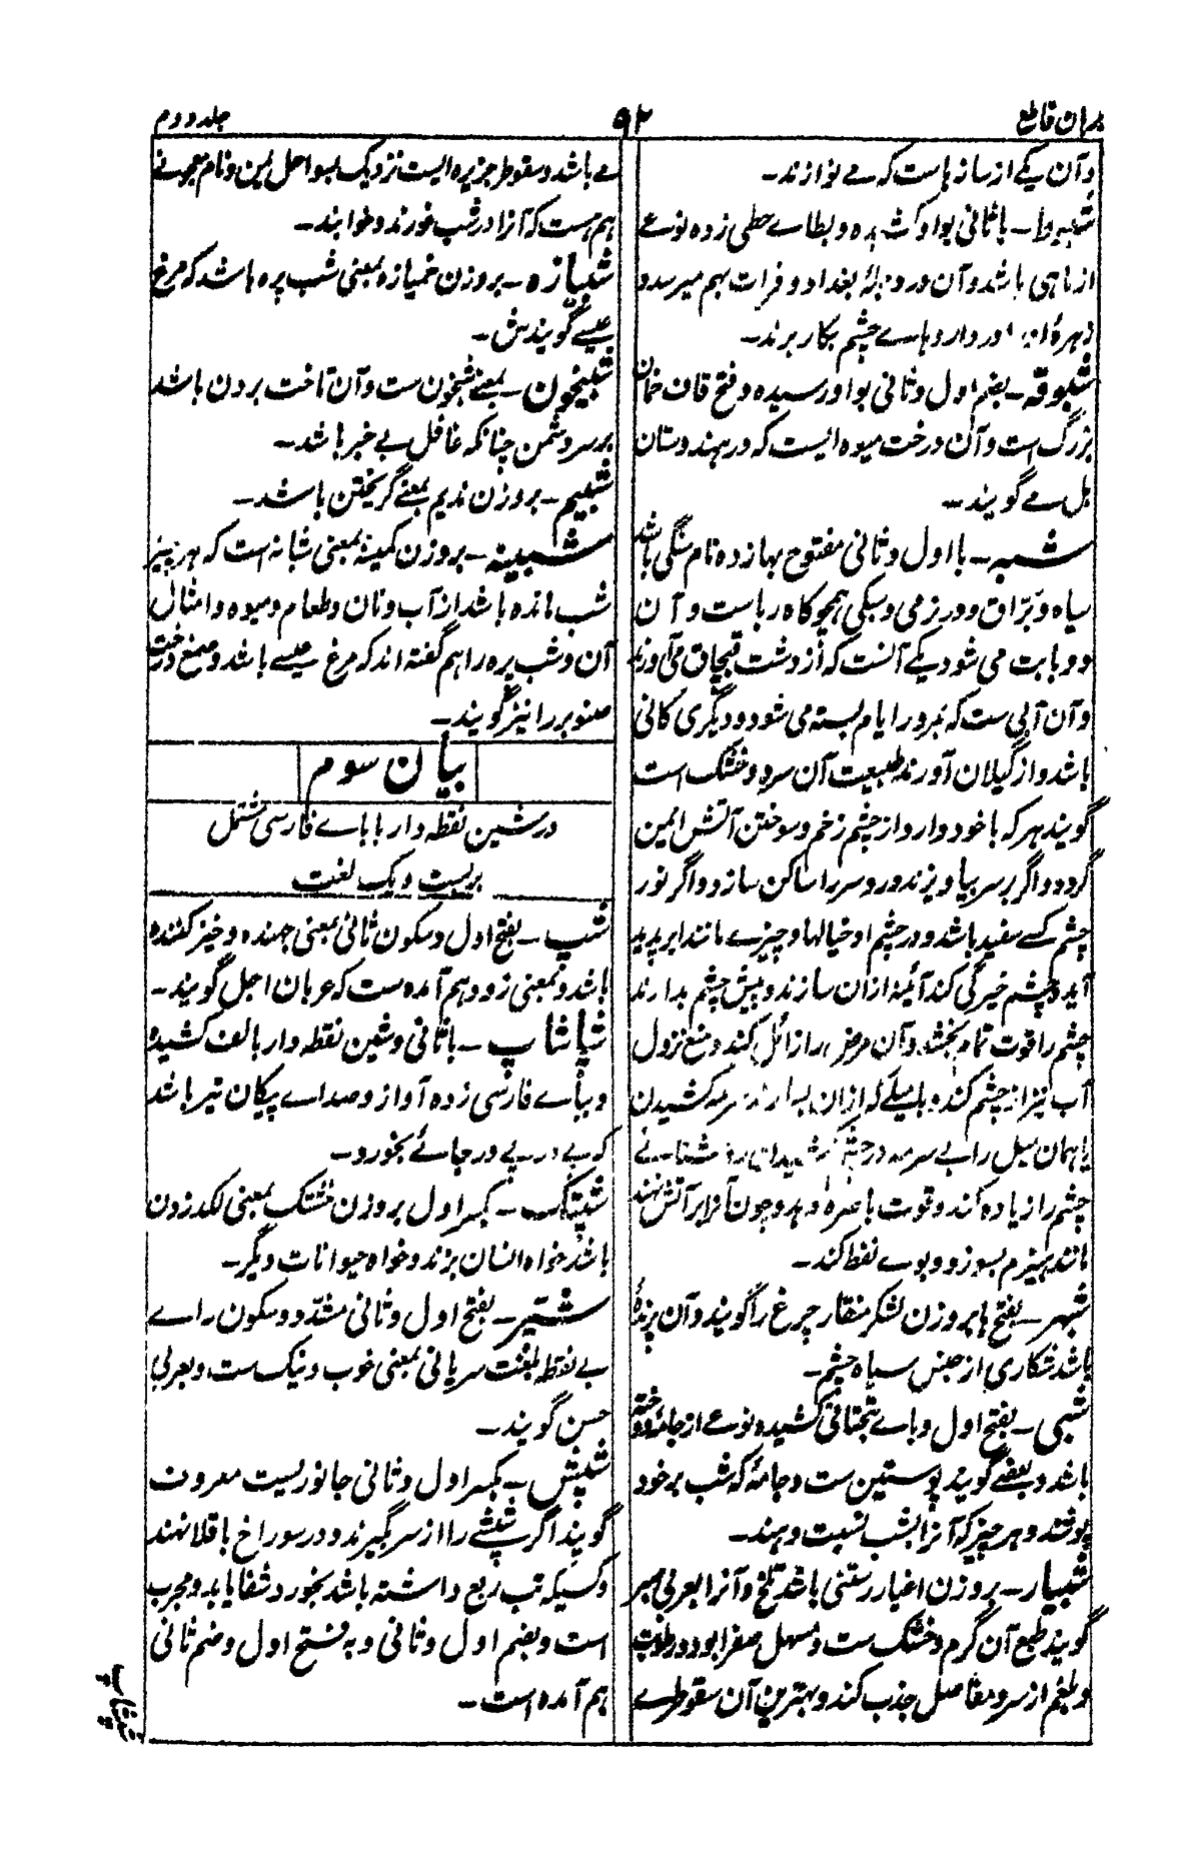 برهان قاطع
۹۲
جلد دوم
و آن یکے از سازہاست کہ مے نوازند۔
شبوط۔ باثانی بواو کشیدہ و بطاے حطی زدہ نوعے
از ماہی باشد و آن در دجلۂ بغداد و فرات بہم میرسد و
زہرۂ او در داروہاے چشم بکار برند۔
شبوقہ۔ بضم اول و ثانی بواو رسیدہ و فتح قاف خمان
بزرگ است و آن درخت میوہ ایست کہ در ہندوستان
بل مے گویند۔
شبہ۔ با اول و ثانی مفتوح بہا زدہ نام سنگی باشد
سیاہ و برّاق و در نرمی و سبکی ہمچو کاہ رباست و آن
دو بابت می شود یکے آنست کہ از دشت قبچاق می آورند
و آن آبی ست کہ بمرور ایام بستہ می شود و دیگری کانی
باشد و از گیلان آورند طبیعت آن سرد و خشک است
گویند ہر کہ با خود دارد از چشم زخم و سوختن آتش ایمن
گردد و اگر بر سر بیاویزند درد سر را ساکن سازد و اگر نور
چشم کسے سفید باشد و در چشم او خیالہا و چیزے مانند ابر پدید
آید و چشم خیرگی کند آئینہ ازان سازند و پیش چشم بدارند
چشم را قوت تمام بخشد و آن مرض را زائل کند و منع نزول
آب نیز از چشم کند و با میلے کہ ازان بسازند سرمہ کشیدن
یا ہمان میل را بے سرمہ در چشم کشیدن روشنائے
چشم را زیادہ کند و قوت باصرہ دہد و چون آنرا بر آتش نہند
مانند ہیزم بسوزد و بوے نفط کند۔
شبہر۔ بفتح ہا بروزن لشکر منقار چرغ را گویند و آن پرندۂ
باشد شکاری از جنس سیاہ چشم۔
شبی۔ بفتح اول و باے بتحتانی کشیدہ نوعے از جامۂ دوختہ
باشد و بعضے گویند پوستین ست و جامۂ کہ شب بر خود
پوشند و ہر چیز کہ آنرا بشب نسبت دہند۔
شبیار۔ بروزن اغیار رستنی باشد تلخ و آنرا بعربی صبر
گویند طبع آن گرم و خشک ست و مسہل صفرا بود و رطوبت
و بلغم از سر و مفاصل جذب کند و بہترین آن سقوطرے
مے باشد و سقوطر جزیرہ ایست نزدیک بسواحل یمن و نام معجونے
ہم ہست کہ آنرا در شب خورند و خوابند۔
شبیازہ۔ بروزن خمیازہ بمعنی شب پرہ باشد کہ مرغ
عیسے گویندش۔
شبیخون۔ بمعنے شبخون ست و آن تاخت بردن باشد
بر سر دشمن چنانکہ غافل بے خبر باشد۔
شبیم۔ بروزن ندیم بمعنے گریختن باشد۔
شبینہ۔ بروزن کمینہ بمعنی شبانہ است کہ ہر چیز
شب ماندہ باشد از آب و نان و طعام و میوہ و امثال
آن و شب پرہ را ہم گفتہ اند کہ مرغ عیسے باشد و صمغ درخت
صنوبر را نیز گویند۔
بیان سوم
در شین نقطہ دار با باے فارسی مشتمل
بر بیست و یک لغت
شپ۔ بفتح اول و سکون ثانی بمعنی جہندہ و خیز کنندہ
باشد و بمعنی زود ہم آمدہ ست کہ عربان اجل گویند۔
شپاشاپ۔ باثانی و شین نقطہ دار بالف کشیدہ
و بباے فارسی زدہ آواز و صداے پیکان تیر باشد
کہ پے در پے در جائے بخورد۔
شپتک۔ بکسر اول بروزن خشتک بمعنی لکد زدن
باشد خواہ انسان بزند و خواہ حیوانات دیگر۔
شپّر۔ بفتح اول و ثانی مشدّد و سکون راے
بے نقطہ بلغت سریانی بمعنی خوب و نیک ست و بعربی
حسن گویند۔
شپش۔ بکسر اول و ثانی جانوریست معروف
گویند اگر شپشے را از سر گیرند و در سوراخ باقلا نہند
و کسیکہ تب ربع داشتہ باشد بخورد شفا یابد و مجرب
است و بضم اول و ثانی و بہ فتح اول و ضم ثانی
ہم آمدہ است۔